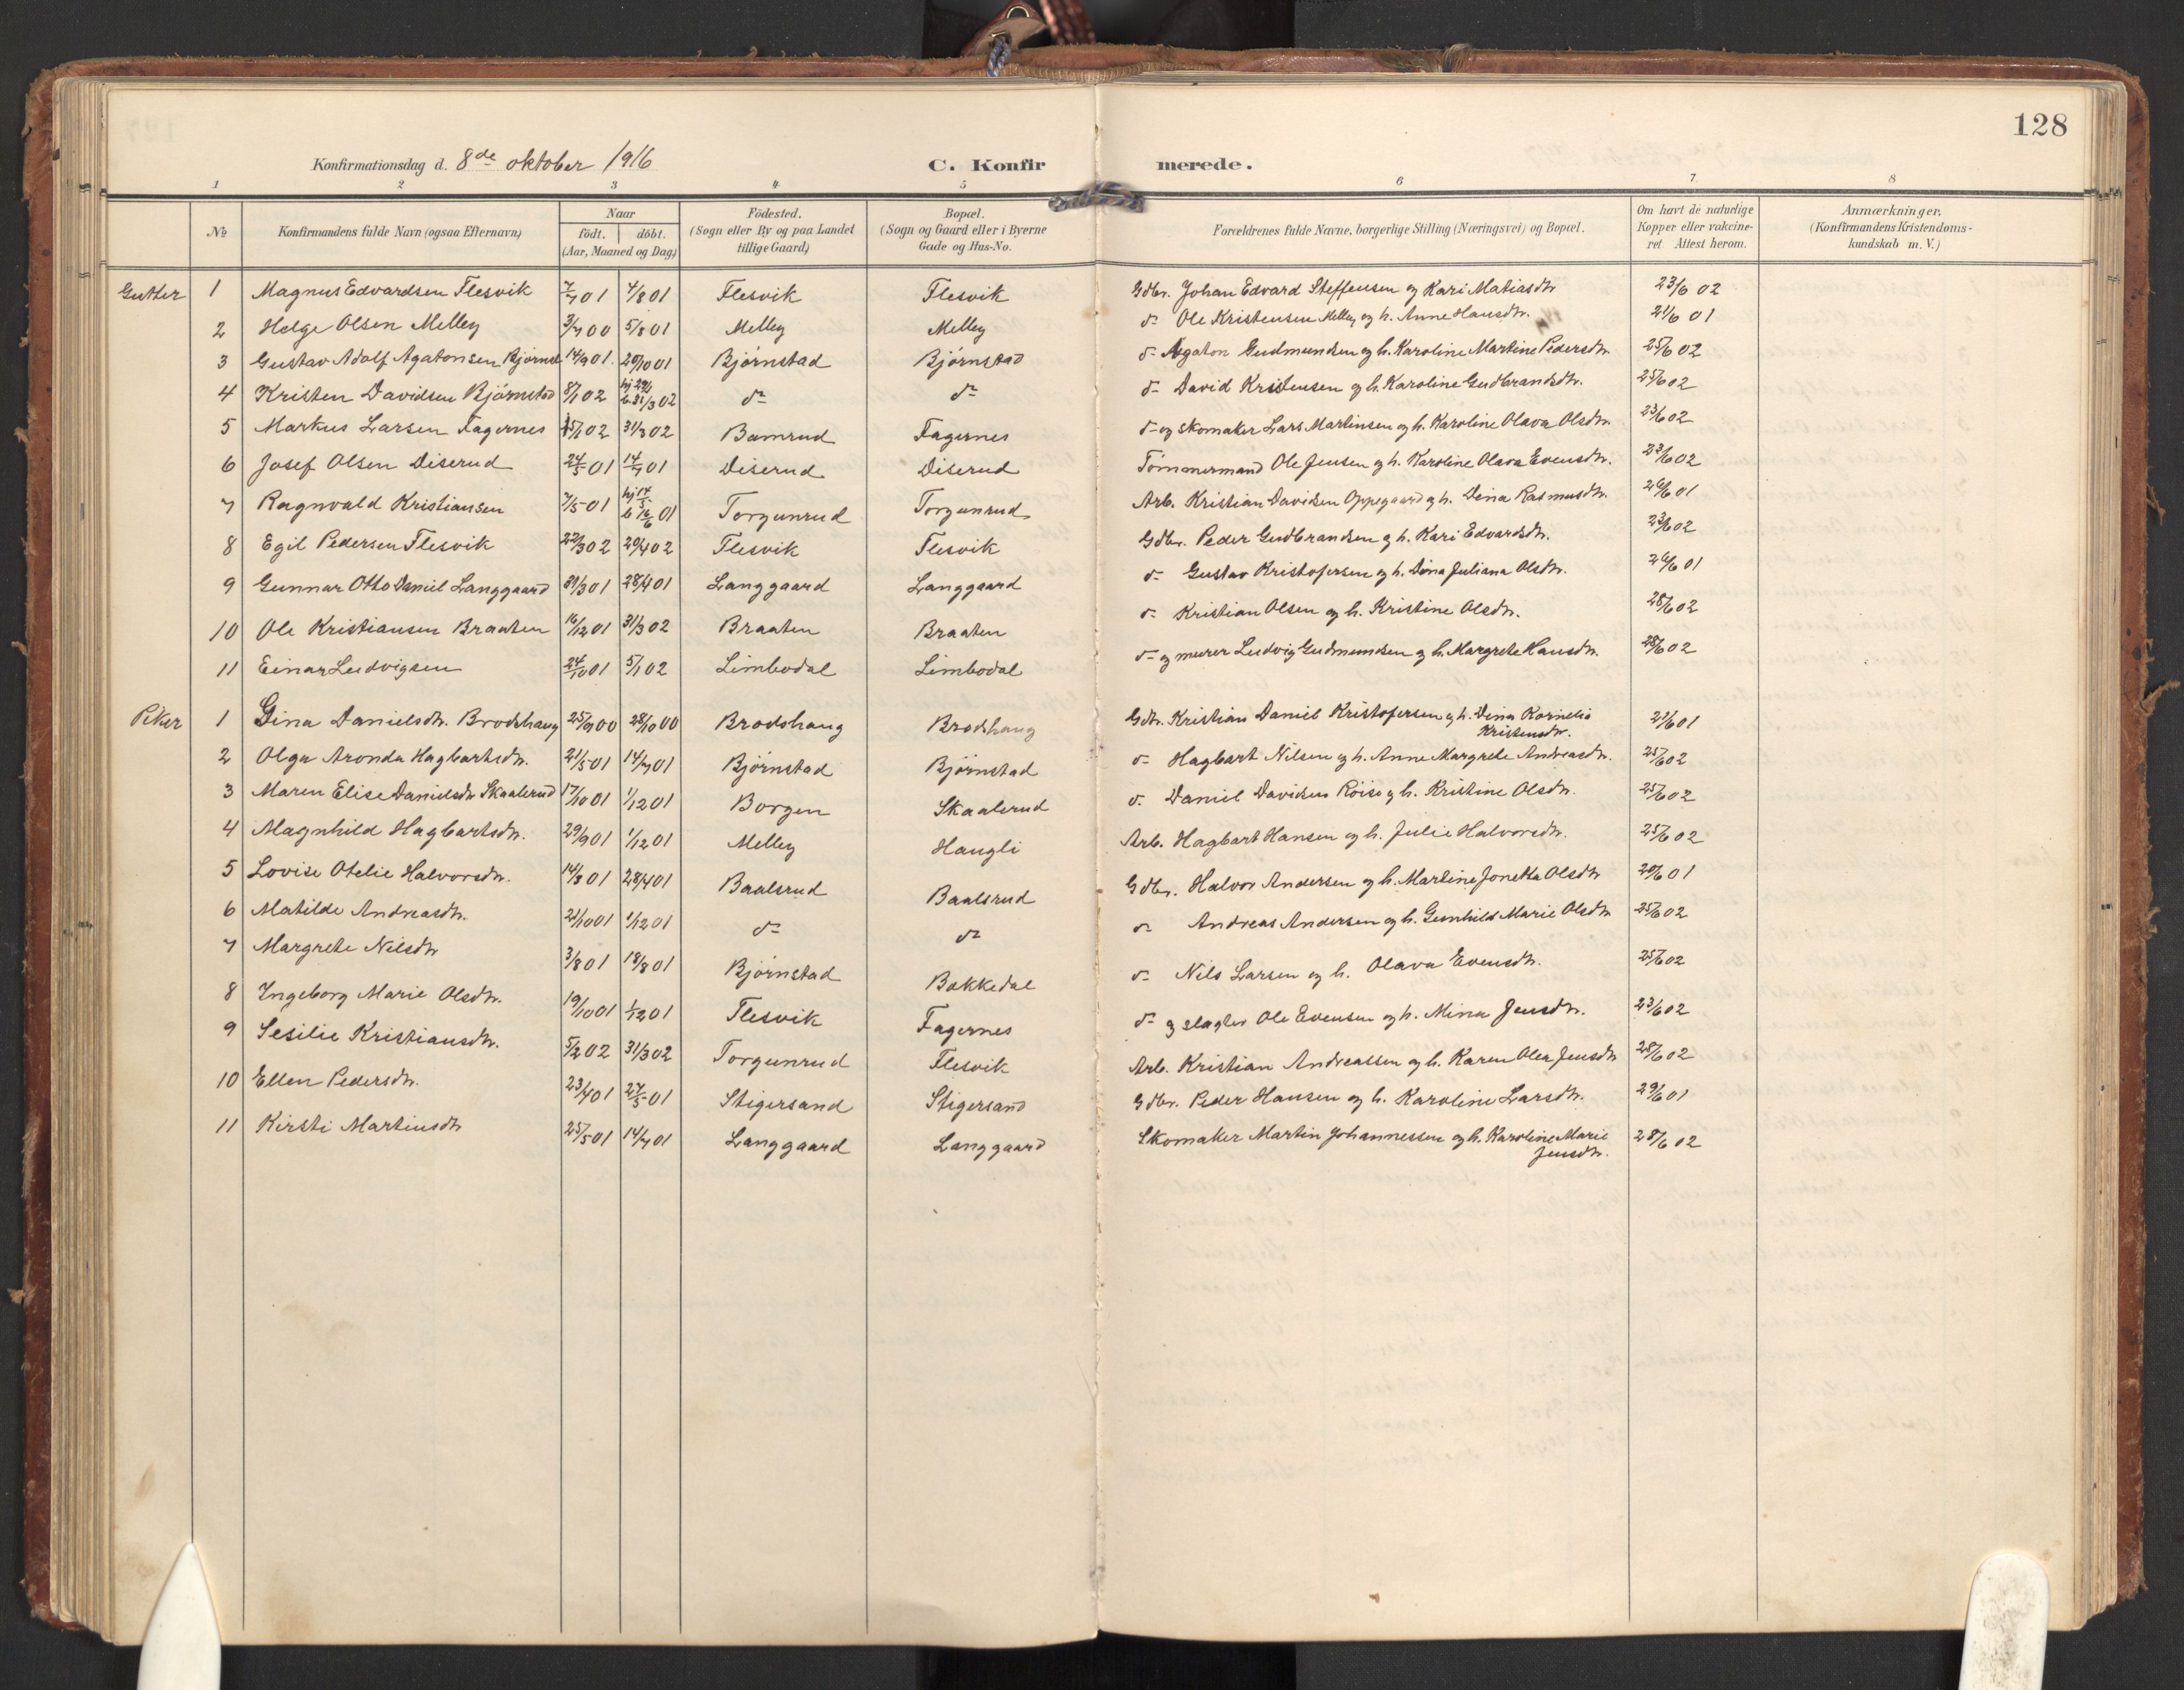 128
Konfirmationsdag d. 8de oktober 1916 C. Konfirmerede.
1 2 3 4 5 6 7 8
No Konfirmandens fulde Navn (ogsaa Efternavn) Naar födt. döbt. (Aar, Maaned og Dag) Födested. (Sogn eller By og paa Landet tillige Gaard) Bopæl. (Sogn og Gaard eller i Byerne Gade og Hus-No. Forældrenes fulde Navne, borgerlige Stilling (Næringsvei) og Bopæl. Om havt de naturlige Kopper eller vakcineret Attest herom. Anmærkninger. (Konfirmandens Kristendomskundskab m. V.)
Gutter 1 Magnus Edvardsen Flesvik 7/7 01 4/8 01 Flesvik Flesvik Gdbr. Johan Edvard Steffensen og Kari Matiasdtr 23/6 02
2 Helge Olsen Melley 3/7 00 5/8 01 Melley Melley do Ole Kristensen Melley og h. Anne Hansdtr. 21/6 01
3 Gustav Adolf Agatonsen Bjørnst 14/9 01 20/10 01 Bjørnstad Bjørnstad do Agaton Gudmundsen og h. Karoline Martine Pedersdtr. 25/6 02
4 Kristen Davidsen Bjørnstad 8/1 02 hj b. 31/3 02 do do do David Kristensen og h. Karoline Gudbrandsdtr. 25/6 02
5 Markus Larsen Fagernes 15/1 02 31/3 02 Bamrud Fagernes do og skomaker Lars Martinsen og h. Karoline Olava Olsdtr. 23/6 02
6 Josef Olsen Diserud 24/5 01 14/7 01 Diserud Diserud Tømmermand Ole Jensen og h. Karoline Olava Evensdtr. 23/6 02
7 Ragnvald Kristiansen 7/5 01 hj 14/5 b 16/6 01 Torgunrud Torgunrud Arb. Kristian Davidsen Oppegaard og h. Dina Rasmusdtr. 26/6 01
8 Egil Pedersen Flesvik 22/3 02 20/4 02 Flesvik Flesvik Gdbr. Peder Gudbrandsen og h. Kari Edvardsdtr. 23/6 02
9 Gunnar Otto Daniel Langgaard 30/3 01 28/4 01 Langgaard Langgaard do Gustav Kristofersen og h. Dina Juliana Olsdtr. 26/6 01
10 Ole Kristiansen Braaten 16/12 01 31/3 02 Braaten Braaten do Kristian Olsen og h. Kristine Olsdtr. 28/6 02
11 Einar Ludvigsen 24/10 01 5/1 02 Limbodal Limbodal do og murer Ludvig Gudmundsen og h. Margrete Hansdtr. 28/6 02
Piker 1 Gina Danielsdtr. Brodshaug 25/9 00 28/10 00 Brodshaug Brodshaug Gdbr. Kristian Daniel Kristofersen og h. Dina Kornelia Kristensdtr. 21/6 01
2 Olga Aronda Hagbartsdtr. 21/5 01 14/7 01 Bjørnstad Bjørnstad do Hagbart Nilsen og h. Anne Margrete Andreasdtr. 25/6 02
3 Maren Elise Danielsdtr Skaalerud 17/10 01 1/12 01 Borgen Skaalerud do Daniel Davidsen Röise og h. Kristine Olsdtr. 25/6 02
4 Magnhild Hagbartsdtr. 29/9 01 1/12 01 Melley Haugli Arb. Hagbart Hansen og h. Julie Halvorsdtr. 25/6 02
5 Lovise Otelie Halvorsdtr. 14/3 01 28/4 01 Baalsrud Baalsrud Gdbr. Halvor Andersen og h. Martine Jonetta Olsdtr 20/6 01
6 Matilde Andreasdtr. 21/10 01 1/12 01 do do do Andreas Andersen og h. Gunhild Marie Olsdtr 25/6 02
7 Margrete Nilsdtr 3/8 01 18/8 01 Bjørnstad Bakkedal do Nils Larsen og h. Olava Evensdtr. 25/6 02
8 Ingeborg Marie Olsdtr. 19/10 01 1/12 01 Flesvik Fagernes do og slagter Ole Evensen og h. Mina Jensdtr. 23/6 02
9 Sesilie Kristiansdtr. 5/2 02 31/3 02 Torgunrud Flesvik Arb. Kristian Andreassen og h. Karen Olea Jensdtr 28/6 02
10 Ellen Pedersdtr. 23/4 01 27/5 01 Stigersand Stigersand Gdbr. Peder Hansen og h. Karoline Larsdtr. 29/6 01
11 Kirsti Martinsdtr 25/5 01 14/7 01 Langgaard Langgaard Skomaker Martin Johannessen og h. Karoline Marie Jensdtr. 28/6 02